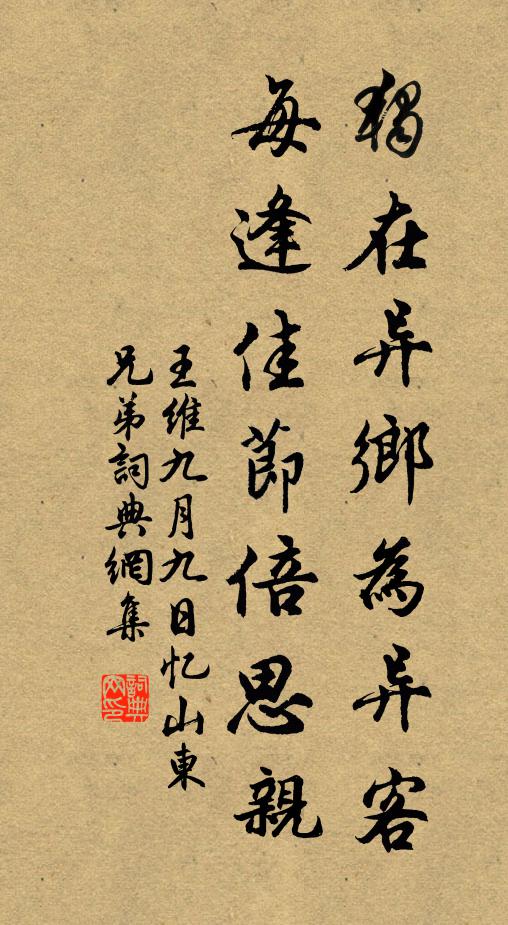 獨在异鄉為异客
每逢佳節倍思親
王維九月九日忆山東
兄弟詞典網集
詞典网印